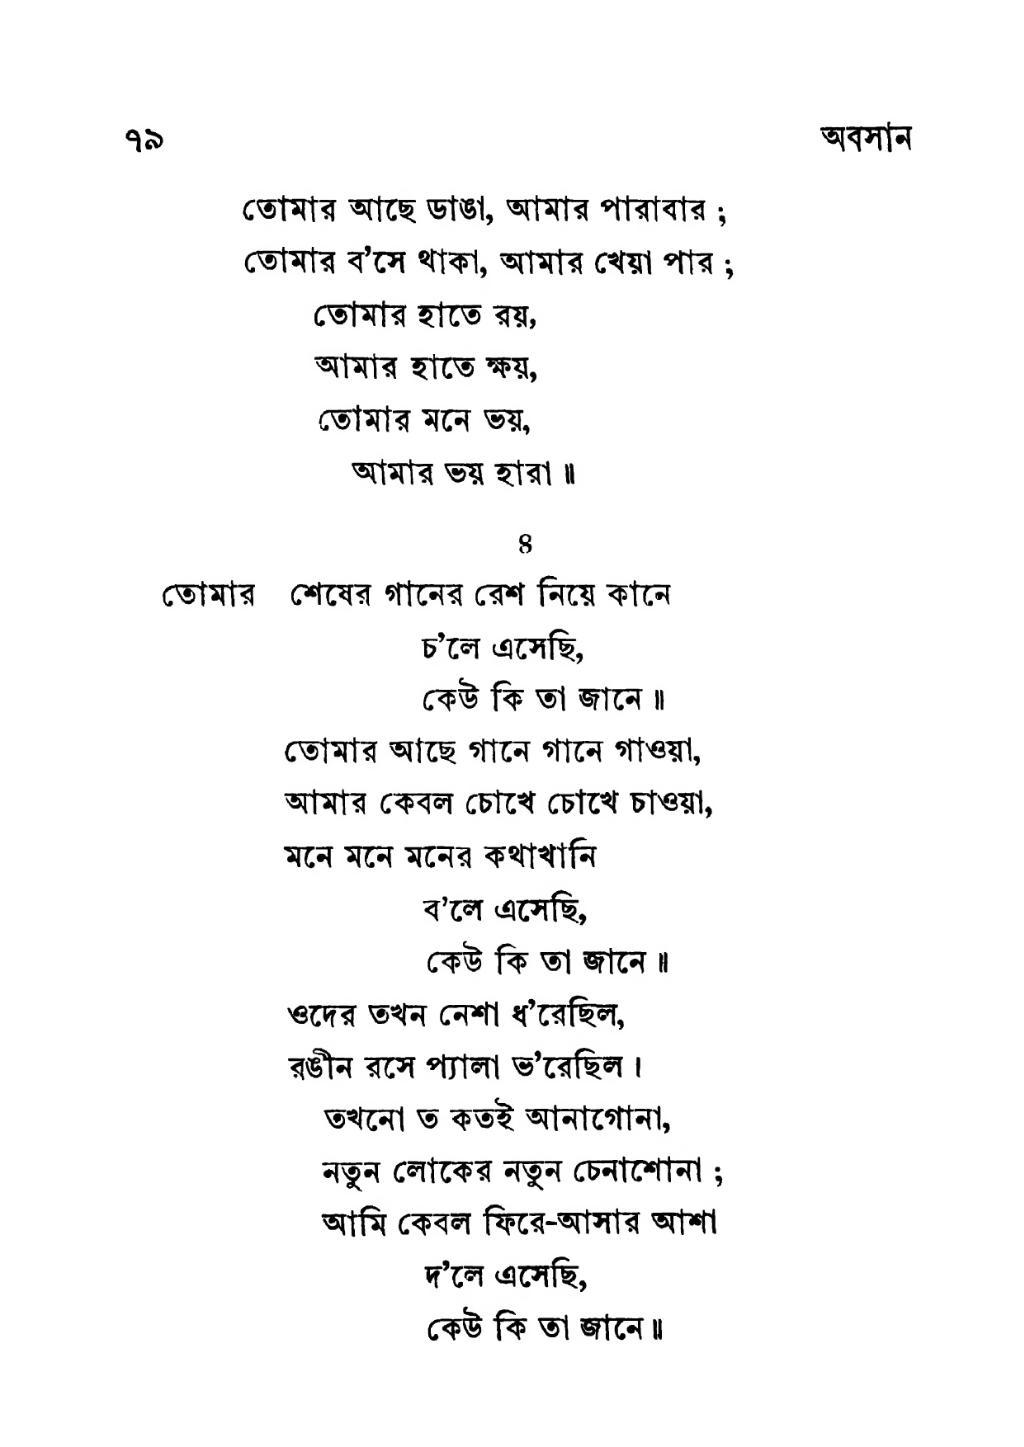 ৭৯ অবসান
তোমার আছে ডাঙা, আমার পারাবার ;
তোমার ব’সে থাকা, আমার খেয়া পার ;
তোমার হাতে রয়,
আমার হাতে ক্ষয়,
তোমার মনে ভয়,
আমার ভয় হারা ॥
৪
তোমার শেষের গানের রেশ নিয়ে কানে
চ’লে এসেছি,
কেউ কি তা জানে ॥
তোমার আছে গানে গানে গাওয়া,
আমার কেবল চোখে চোখে চাওয়া,
মনে মনে মনের কথাখানি
ব’লে এসেছি,
কেউ কি তা জানে ॥
ওদের তখন নেশা ধ’রেছিল,
রঙীন রসে প্যালা ভ’রেছিল ।
তখনো ত কতই আনাগোনা,
নতুন লোকের নতুন চেনাশোনা ;
আমি কেবল ফিরে-আসার আশা
দ’লে এসেছি,
কেউ কি তা জানে ॥